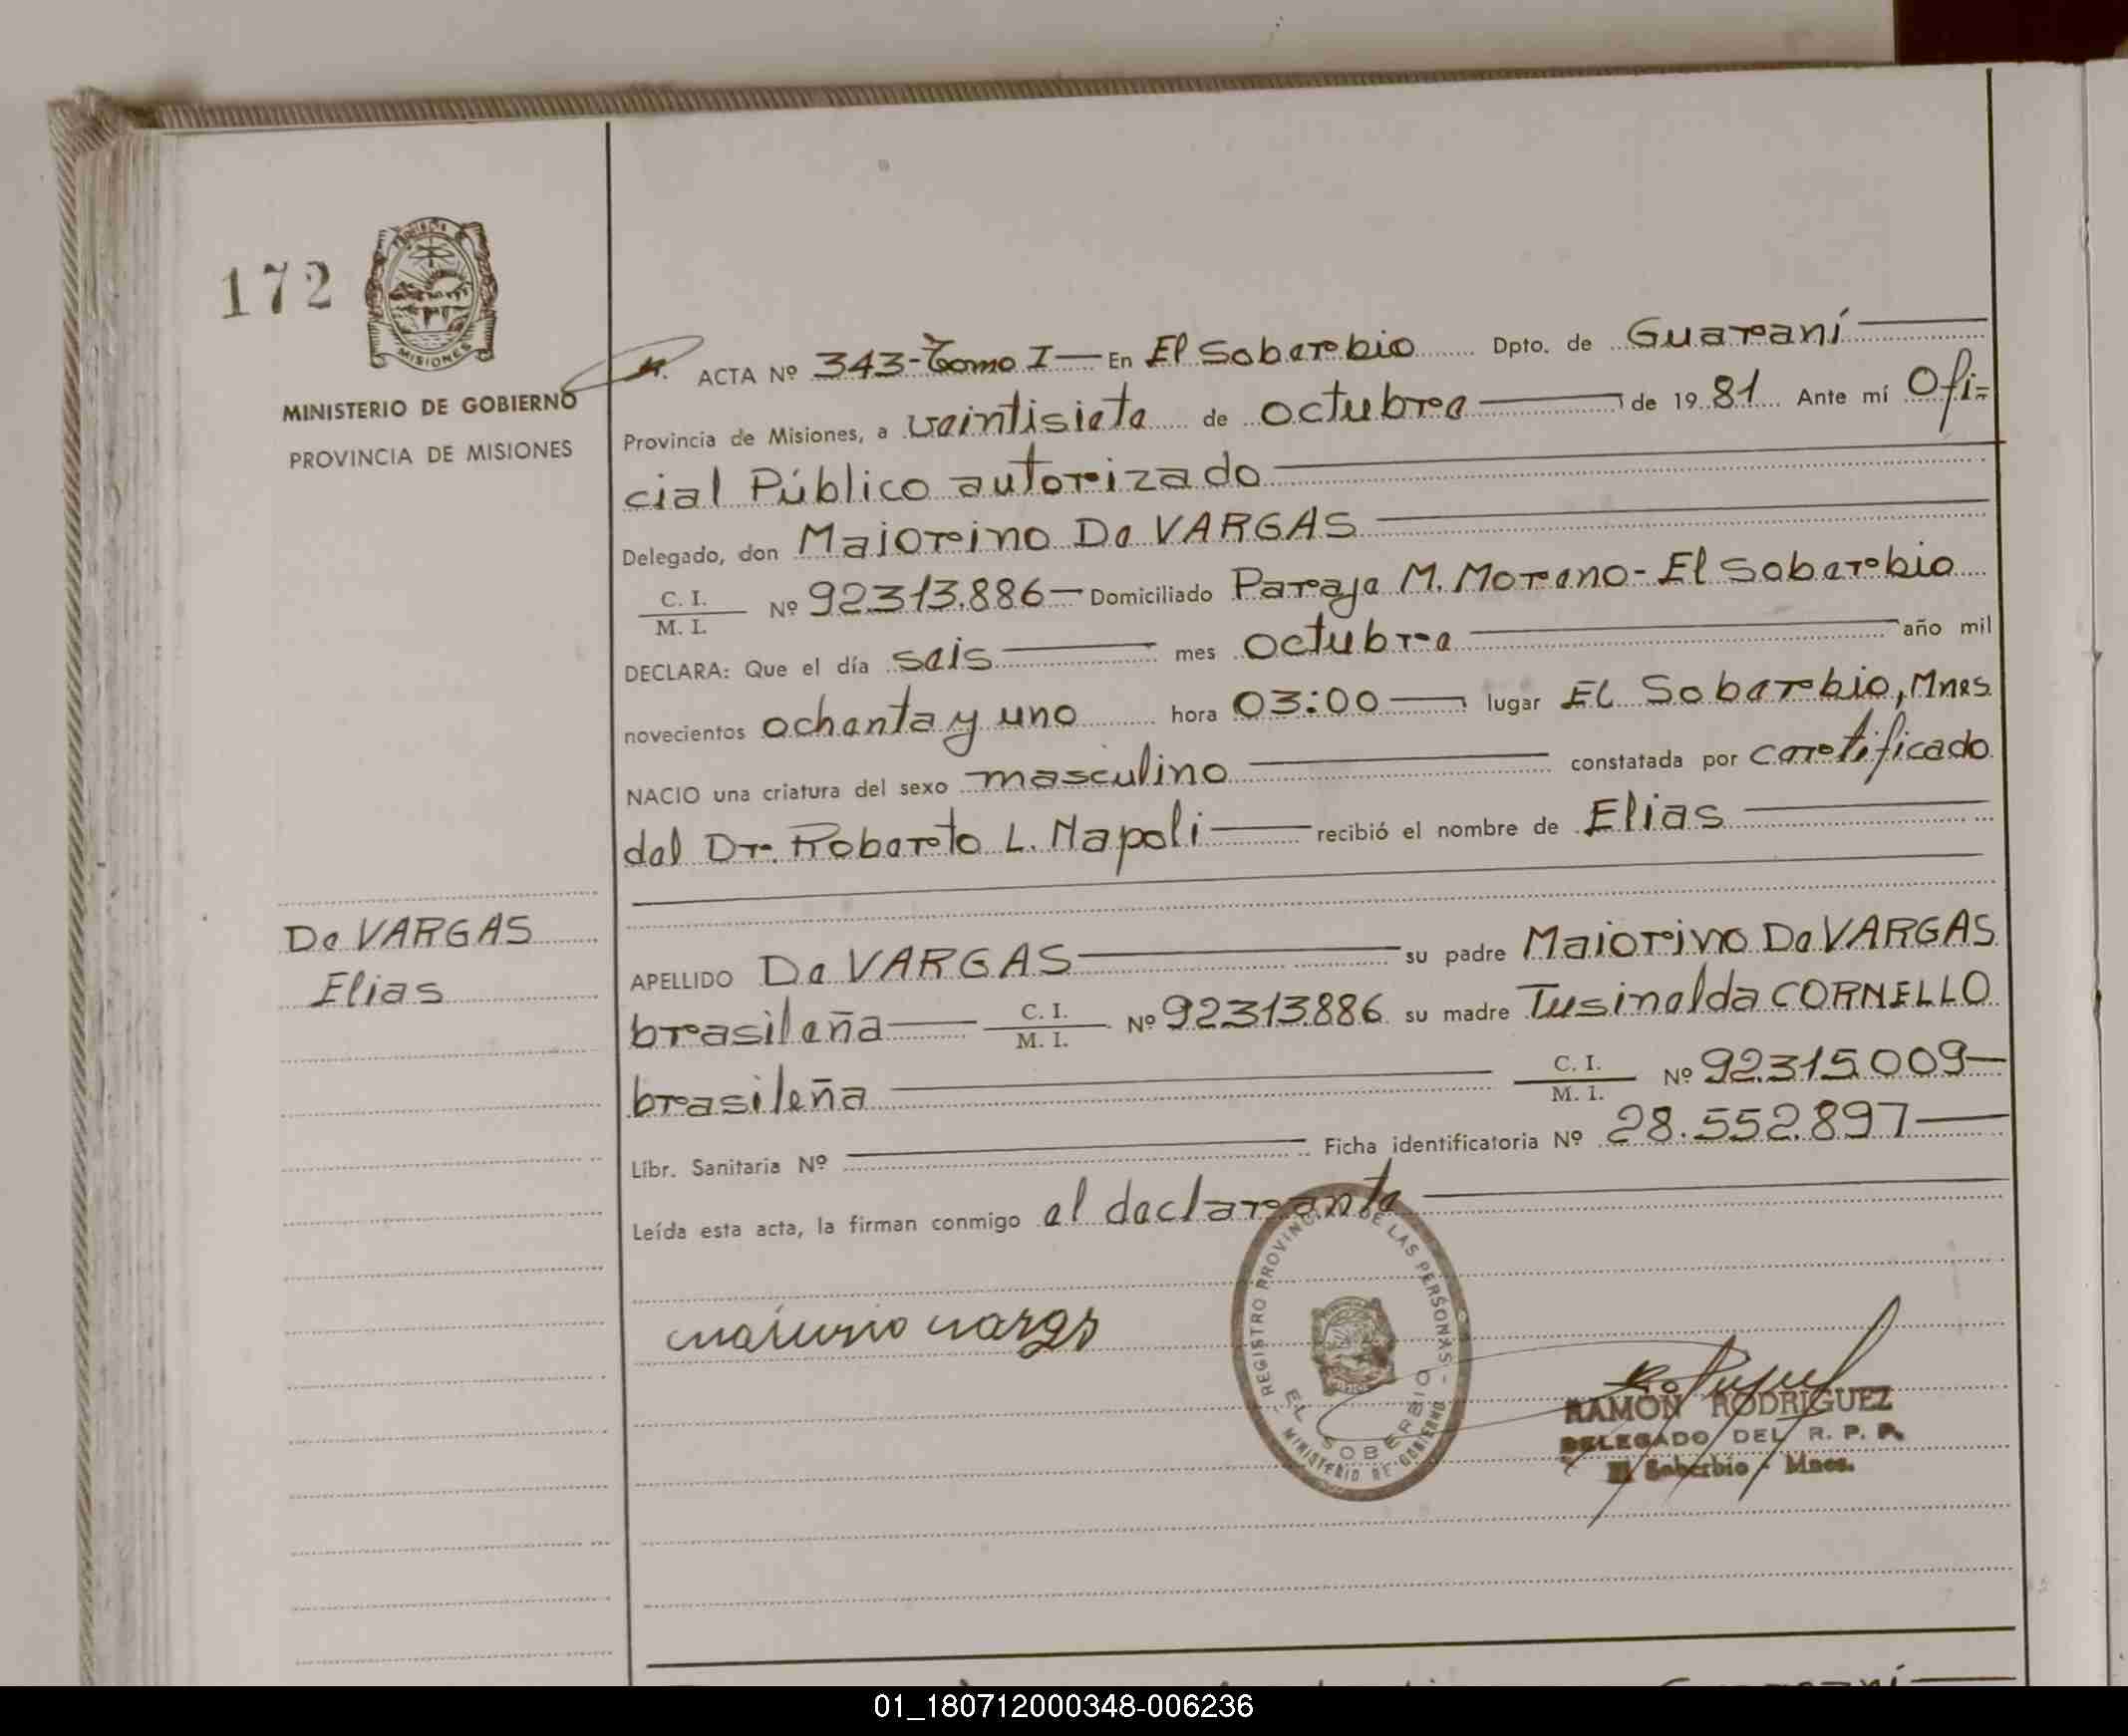 172
MISIONES
MINISTERIO DE GOBIERNO
PROVINCIA DE MISIONES
ACTA Nº 343-Tomo I— En El Soberbio Dpto. de Guaraní
Provincia de Misiones, a veintisiete de octubre de 19 81 Ante mí Ofi=
cial Público autorizado
Delegado, don Maiorino De VARGAS
C. I. / M. I. Nº 92.313.886— Domiciliado Paraje M. Moreno- El Soberbio
DECLARA: Que el día seis mes octubre año mil
novecientos ochenta y uno hora 03:00 lugar El Soberbio, Mnes
NACIO una criatura del sexo masculino constatada por certificado
del Dr. Roberto L. Napoli recibió el nombre de Elias
De VARGAS
Elias
APELLIDO De VARGAS su padre Maiorino De VARGAS
brasileña C. I. / M. I. Nº 92.313.886 su madre Tusinelda CORNELLO
brasileña C. I. / M. I. Nº 92.315.009—
Libr. Sanitaria Nº Ficha identificatoria Nº 28.552.897—
Leída esta acta, la firman conmigo el declarante
REGISTRO PROVINCIAL DE LAS PERSONAS -
EL SOBERBIO
MINISTERIO DE GOBIERNO
RAMON RODRIGUEZ
DELEGADO DEL R. P. P.
El Soberbio - Mnes.
Guaraní
01_180712000348-006236